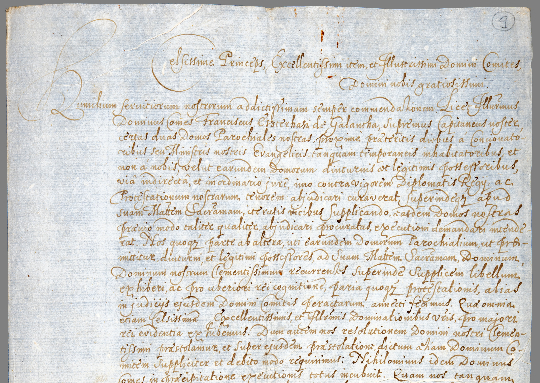 9
Celsissime Princeps, Excellentissimi item, et Illustrissimi Domini Comites,
Domini nobis gratiosissimi.
Humillimam servitiorum nostrorum addictissimam semper commendationem. Licet Illustrissimus
Dominus Comes Franciscus Eszterhasi de Galantha, Supremus Capitaneus noster
certas duas Domos Parochiales nostras, proxime praeteritis diebus a Concionato
ribus seu Ministris nostris Evangelicis tanquam temporaneis inhabitatoribus, et
non a nobis, velut earundem Domorum diuturnis et legitimis possessoribus,
via indirecta, et, uno contra vigorem Diplomatis Regii, ac
Protestationum nostrarum tenorem abjudicari curaverat, Superindeq apud
suam Mattem Sacramam, iteratis vicibus Supplicando, easdem Domos nostras
praevio modo taliter qualiter abjudicari procuratas, executioni demandari intende
rat. Nos quoq parte ab altera, uti earundem Domorum Parochialium, ut prae-
missum, diuturni et legitimi possessores ad Suam Mattem Sacramam, Dominum
Dominum nostrum Clementissimum recurrentes, Superinde Supplicem libellum
exhiberi, ac pro uberiori rei cognitione, paria quoq protestationis, ab
in judiciis ejusdem Domini Comitis peractarum, annecti fecimus. Quae omnia
etiam Celsissimae Excellentissimis, et Illustrmis Dominationibus Vris, pro majori
rei evidentia exhibemus. Dum autem nos resolutionem Domini nostri Clemen-
tissimi praestolamur, et super ejusdem praestolatione dictum etiam Dominum Co-
mitem Suppliciter et debito modo requirimus: Nihilominus idem Dominus
Comes in praecipitatione executionis totus incumbit. Quam nos tanquam